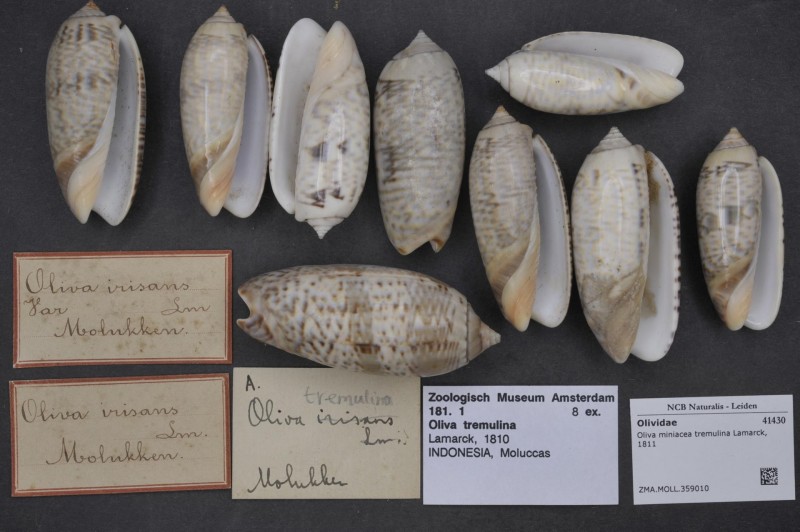 Oliva irisans
Var Lm
Molukken.
Oliva irisans
Lm.
Molukken.
A.
tremulina
Oliva irisans
Lm.
Molukken
Zoologisch Museum Amsterdam
181. 1 8 ex.
Oliva tremulina
Lamarck, 1810
INDONESIA, Moluccas
NCB Naturalis - Leiden
Olividae 41430
Oliva miniacea tremulina Lamarck,
1811
ZMA.MOLL.359010